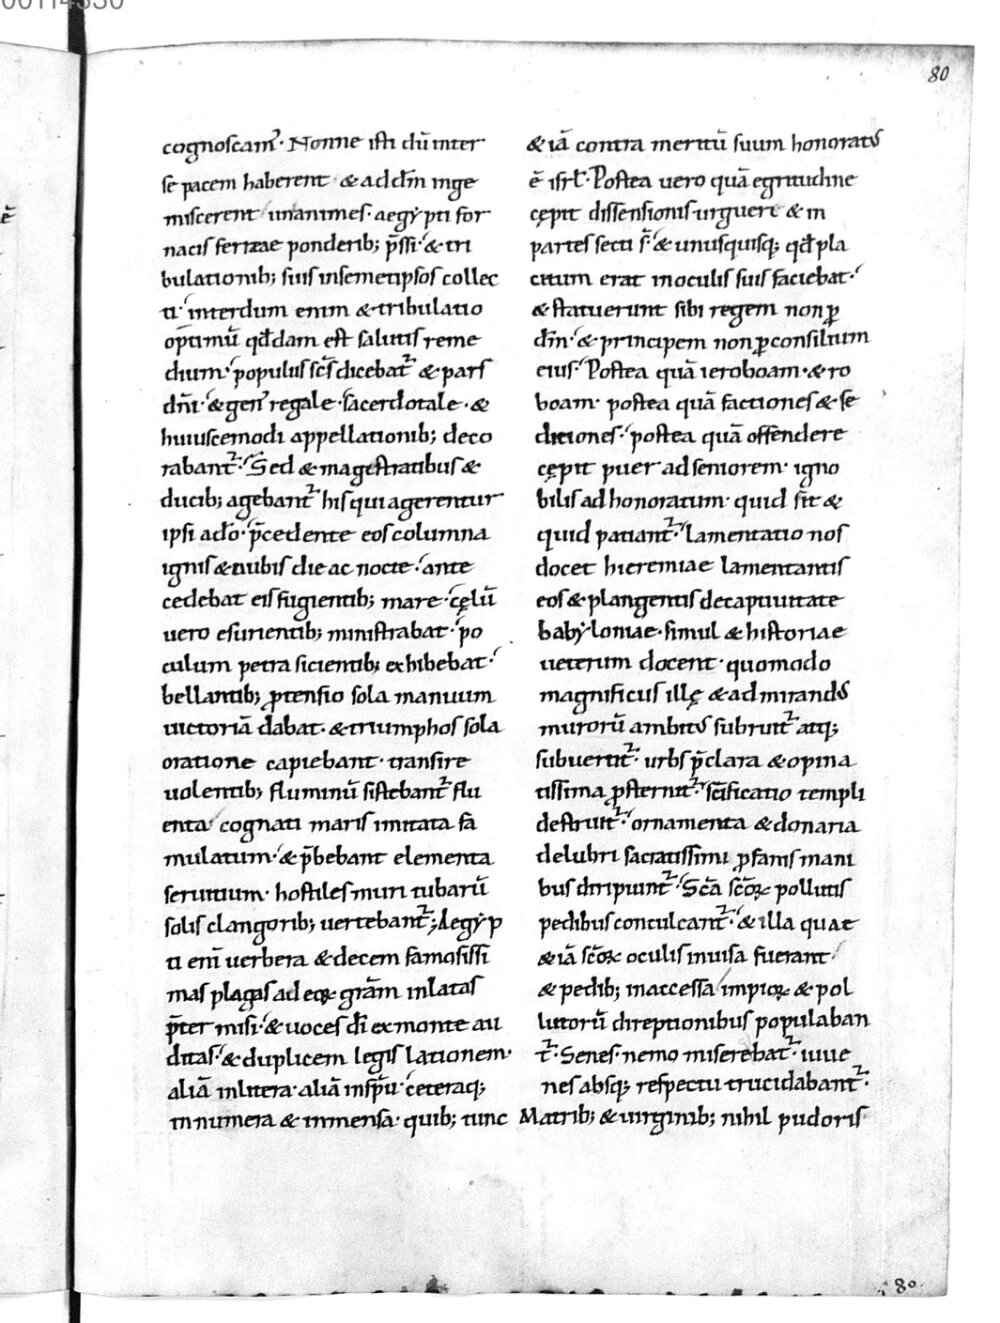 00114330
80
cognoscam᷒· Nonne isti dū inter
se pacem haberent & ad dm̄ inge
miscerent unanimes· aegypti for
nacis ferreae ponderib; p̄ssi· & tri
bulationib; suis insemetipsos collec
ti· interdum enim & tribulatio
optimū qđdam est salutis reme
dium· populus scs̄ dicebat᷑ & pars
dn̄i· & gen᷒ regale· sacerdotale· &
huiuscemodi appellationib; deco
rabant᷑· Sed & magestratibus &
ducib; agebant᷑ his qui agerentur
ipsi a dō· p̄cedente eos columna
ignis & nubis die ac nocte· ante
cedebat eis fugientib; mare· cęlū
uero esurientib; ministrabat· po
culum petra sicientib; exhibebat·
bellantib; ꝓtensio sola manuum
uictoriā dabat· & triumphos sola
oratione capiebant· transire
uolentib; fluminū sistebant᷑ flu
enta cognati maris imitata fa
mulatum· & p̄bebant elementa
seruitium· hostiles muri tubarū
solis clangorib; uertebant᷑; Aegyp
ti eni᷒ uerbera & decem famosissi
mas plagas ad eoꝝ gr̄am inlatas
p̄ter misi· & uoces dī ex monte au
ditas· & duplicem legis lationem·
aliā in littera· aliā in sp̄u· ceteraq;
innumera & inmensa· quib; tunc
& iā contra meritū suum honorat᷒
ē isrl̄· Postea uero quā egritudine
cępit dissensionis urgueri & in
partes secti s̄· & unusquisq; qđ pla
citum erat in oculis suis faciebat·
& statuerunt sibi regem non ꝑ
dm̄· & principem non ꝑ consilium
eius· Postea quā ieroboam· & ro
boam· postea quā factiones & se
diciones· postea quā offendere
cępit puer ad seniorem· igno
bilis ad honoratum· quid sit &
quid patiant᷑· lamentatio nos
docet hieremiae lamentantis
eos & plangentis de captiuitate
babyloniae· simul & historiae
ueterum docent· quomodo
magnificus ille & admirand᷒
murorū ambit᷒ subruit᷑ atq;
subuertit᷑· urbs p̄clara & opina
tissima ꝓsternit᷑· scīficatio templi
destruit᷑· ornamenta & donaria
delubri sacratissimi ꝓfanis mani
bus diripiunt᷑· Scā scōꝝ pollutis
pedibus conculcant᷑· & illa quae
& iā scōꝝ oculis inuisa fuerant
& pedib; inaccessa impioꝝ & pol
lutorū direptionibus populaban
t᷑· Senes nemo miserebat᷑· iuue
nes absq; respectu trucidabant᷑·
Matrib; & uirginib; nihil pudoris
80